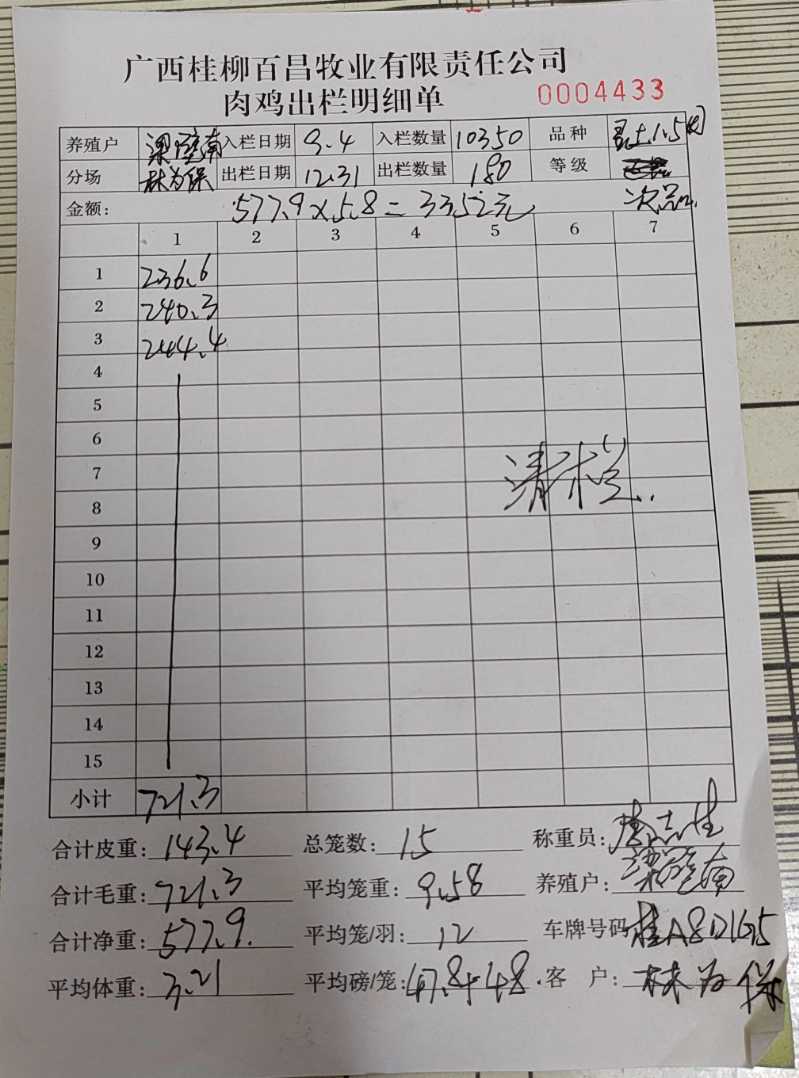 广西桂柳百昌牧业有限责任公司
肉鸡出栏明细单 0004433
养殖户 梁 南 入栏日期 9.4 入栏数量 10350 品种 土1.5
分场 林为保 出栏日期 12.31 出栏数量 180 等级
金额: 577.9×5.8=3352元 次品
1 2 3 4 5 6 7
1 236.6
2 240.3
3 244.4
4
5
6
7 清栏
8
9
10
11
12
13
14
15
小计 721.3
合计皮重: 143.4 总笼数: 15 称重员:
合计毛重: 721.3 平均笼重: 9.58 养殖户: 梁 南
合计净重: 577.9 平均笼/羽: 12 车牌号码 桂A8D1G5
平均体重: 3.21 平均磅/笼: 47.8+48. 客户: 林为保